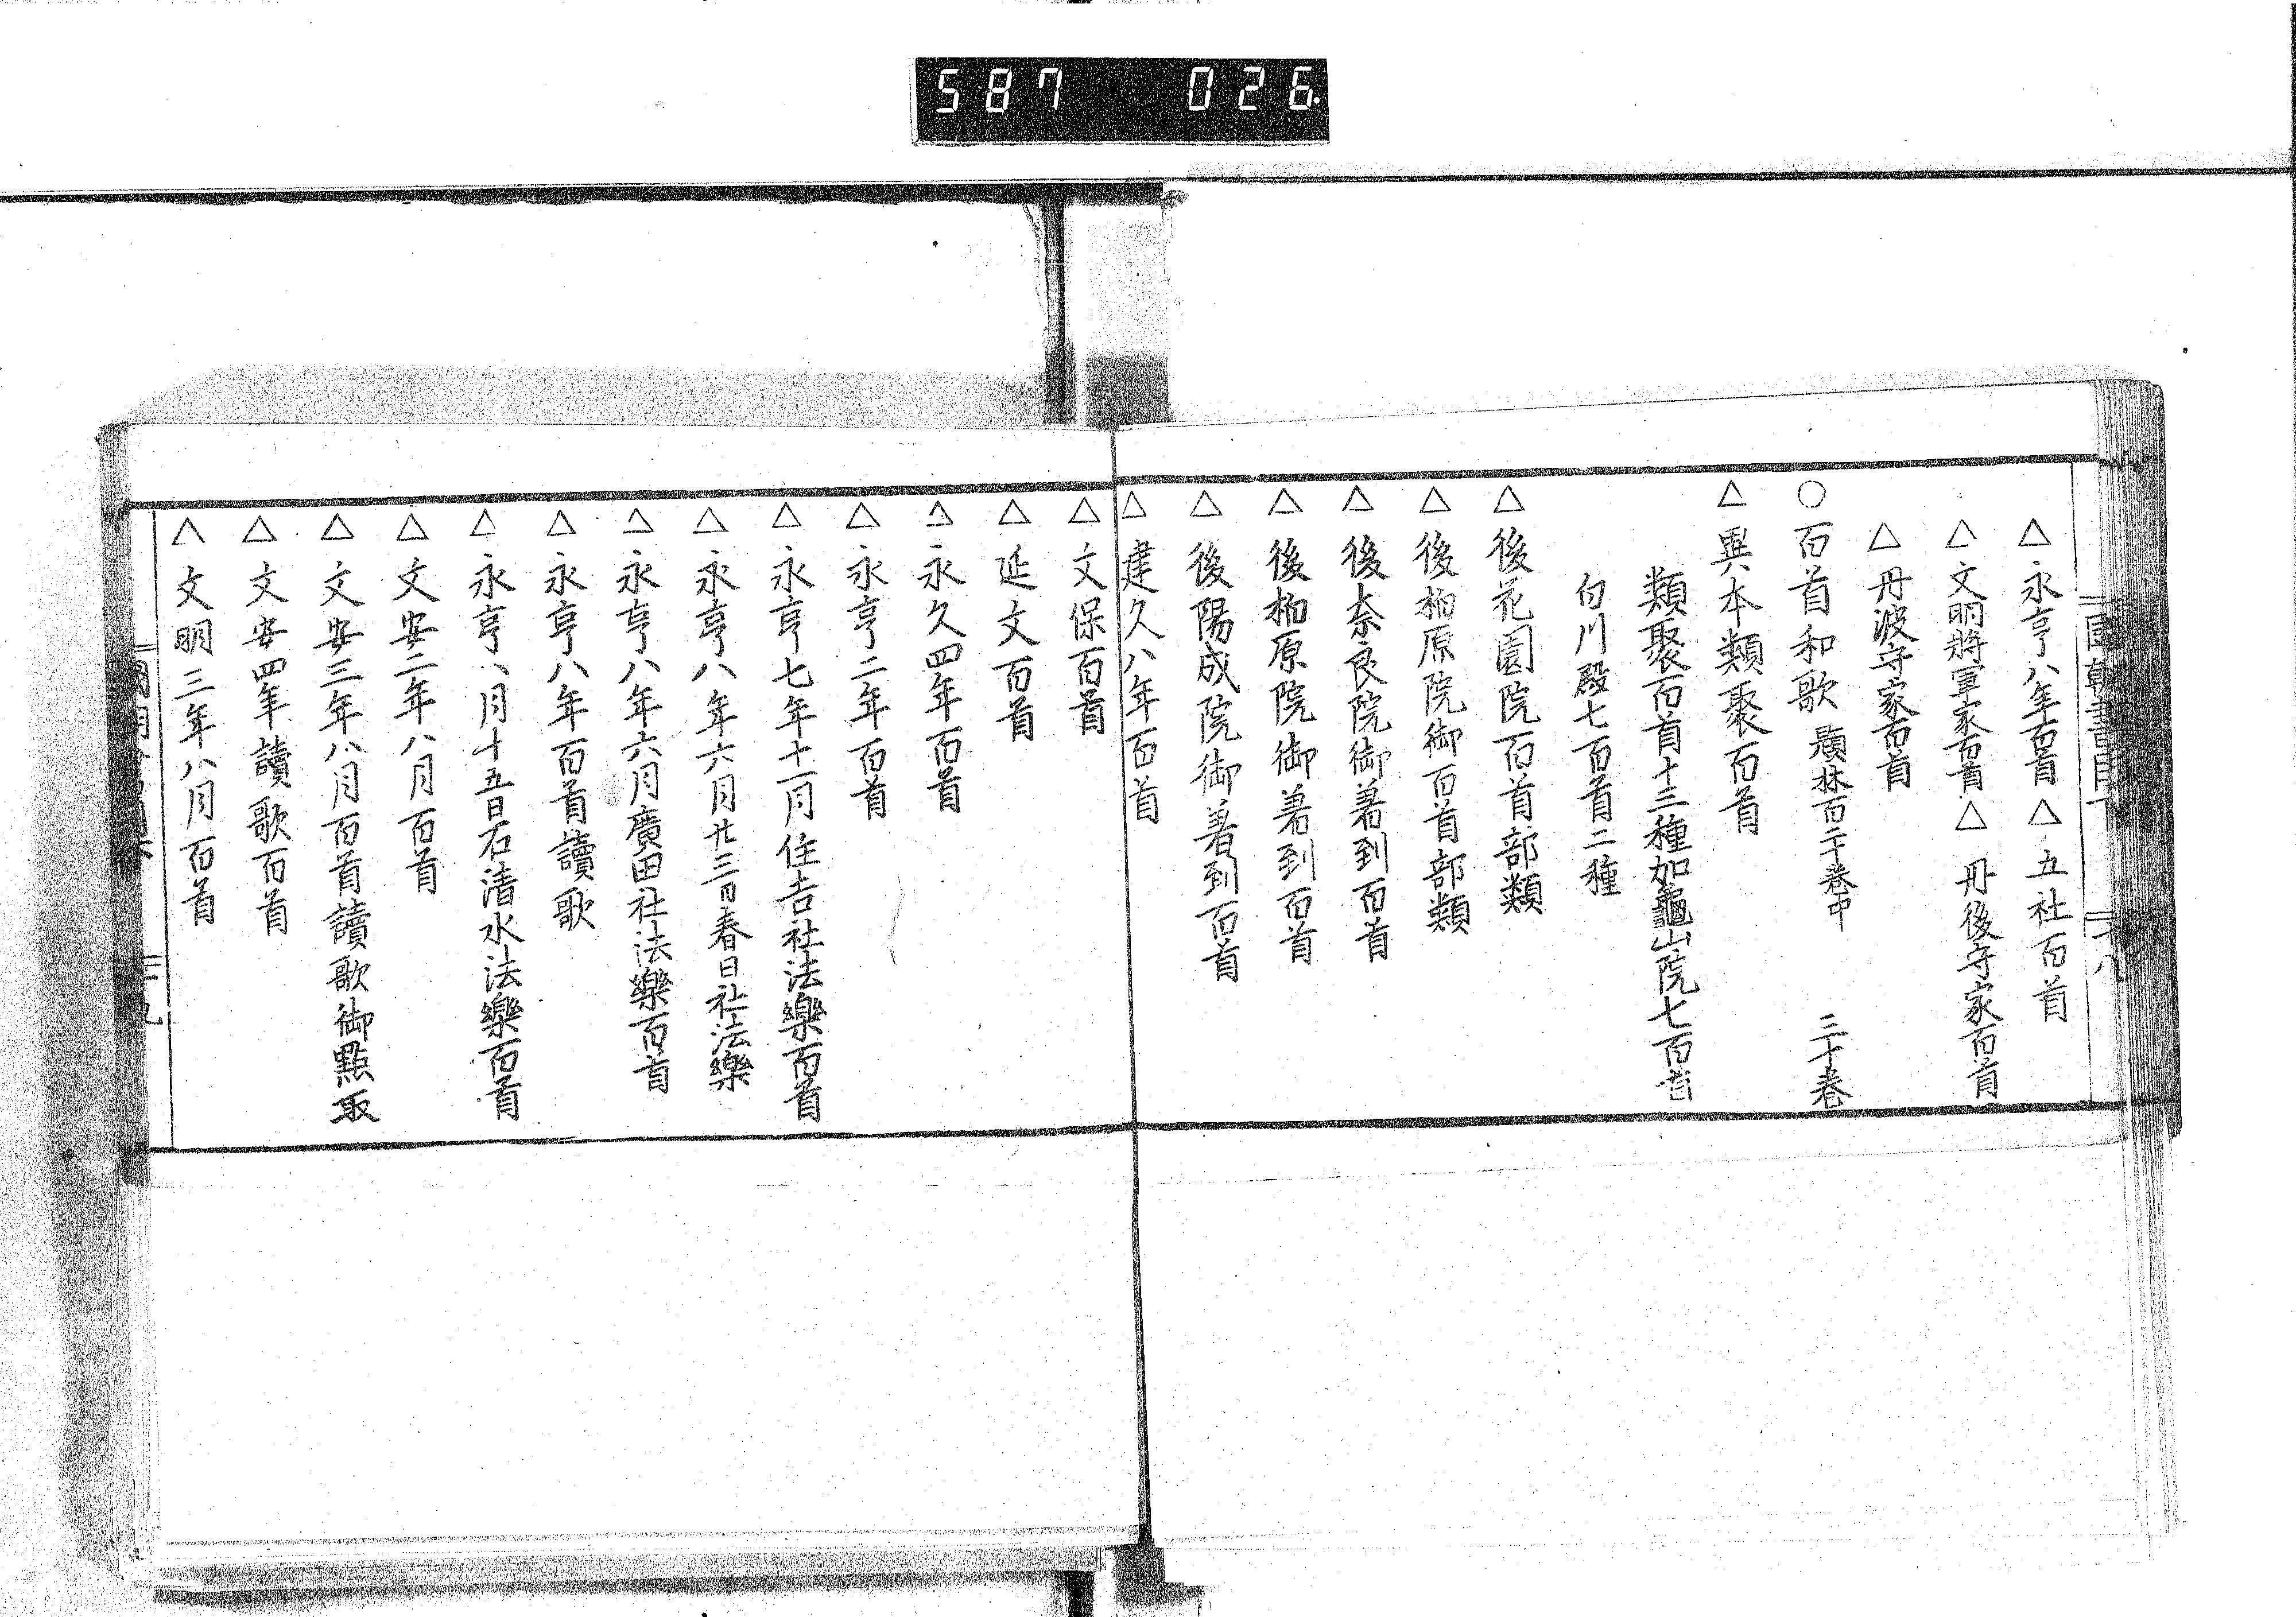 587 026
國朝書目下
十八
△永亨八年百首△五社百首
△文明將軍家百首△丹後守家百首
△丹波守家百首
○百首和歌 類林百二十卷中 三十卷
△異本類聚百首
類聚百首十三種加龜山院七百首
白川殿七百首二種
△後花園院百首部類
△後柏原院御百首部類
△後奈良院御著到百首
△後柏原院御著到百首
△後陽成院御著到百首
△建久八年百首
△文保百首
△延文百首
△永久四年百首
△永亨二年百首
△永亨七年十一月住吉社法樂百首
△永亨八年六月廿三日春日社法樂
△永亨八年六月廣田社法樂百首
△永亨八年百首讀歌
△永亨八月十五日石清水法樂百首
△文安二年八月百首
△文安三年八月百首讀歌御點取
△文安四年讀歌百首
△文明三年八月百首